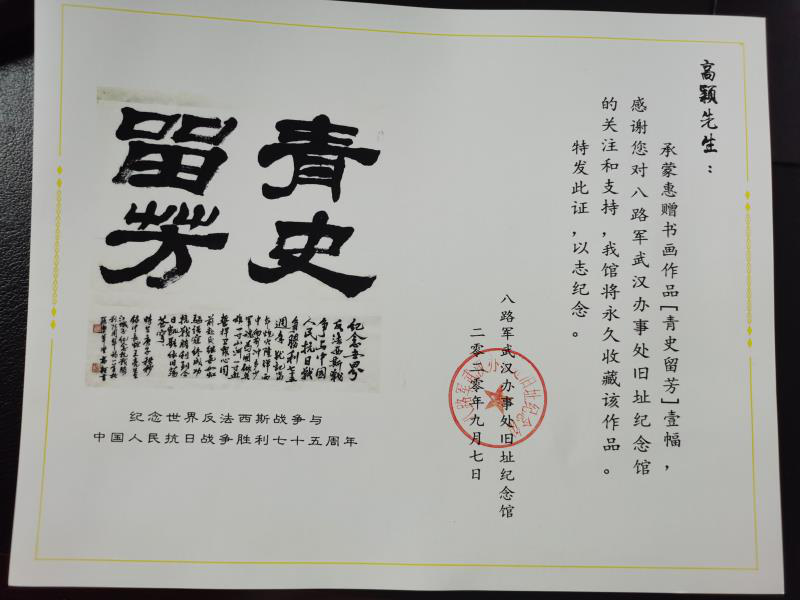 高颖先生：
承蒙惠赠书画作品[青史留芳]壹幅，
感谢您对八路军武汉办事处旧址纪念馆
的关注和支持，我馆将永久收藏该作品。
特发此证，以志纪念。
八路军武汉办事处旧址纪念馆
二〇二〇年九月七日
八路军武汉办事处旧址纪念馆
青史
留芳
纪念世界
反法西斯戰
争与中國
人民抗日戰
纪念世界反法西斯战争与
中国人民抗日战争胜利七十五周年